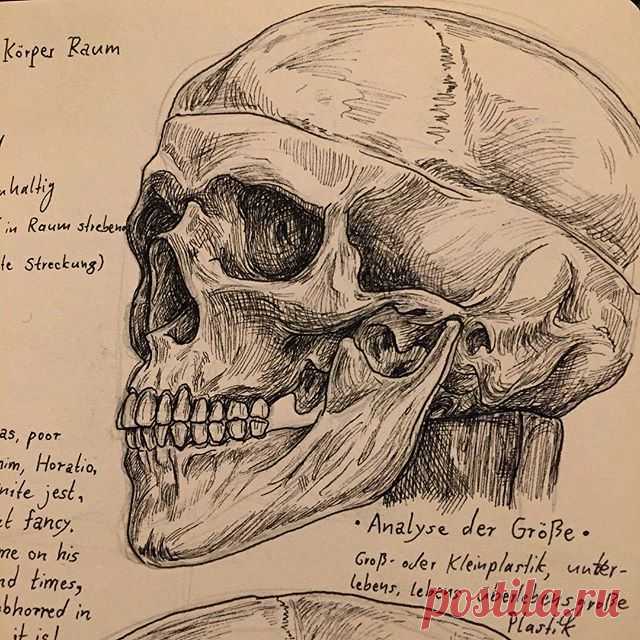 Körper Raum
nhaltig
in Raum streben
te Streckung)
as, poor
him, Horatio,
nite jest,
t fancy.
me on his
nd times,
bhorred in
it is!
• Analyse der Größe •
Groß- oder Kleinplastik, unter-
lebens, lebens, überlebensgroße
Plastik
postila.ru